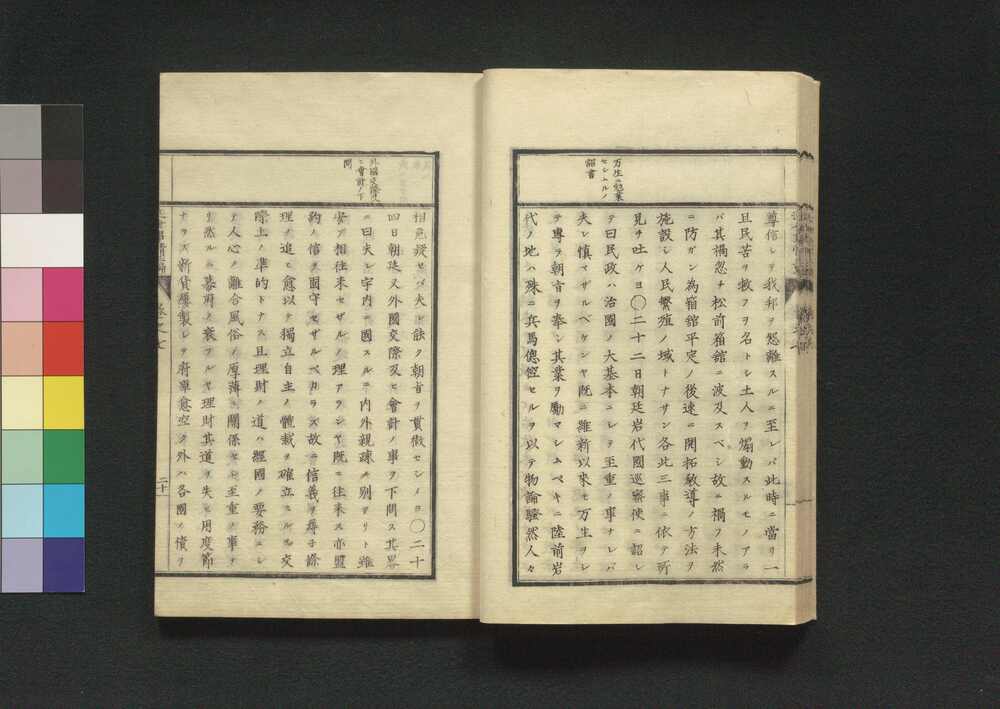 万生ニ勉業
セシムルノ
詔書
尊信シテ我邦ヲ怨離スルニ至レバ此時ニ當リ一
旦民苦ヲ救フヲ名トシ土人ヲ煽動スルモノアラ
バ其禍忽チ松前箱舘ニ波及スベシ故ニ禍ヲ未然
ニ防ガン為箱舘平定ノ後速ニ開拓敎導ノ方法ヲ
施設シ人民繁殖ノ域トナサン各此三事ニ依テ所
見ヲ吐ケヨ〇二十二日朝廷岩代國巡察使ニ詔シ
テ曰民政ハ治國ノ大基本ニシテ至重ノ事ナレバ
夫レ慎マザルベケンヤ既ニ維新以來モ万生ヲシ
テ專ラ朝旨ヲ奉シ其業ヲ勵マシムベキニ陸前岩
代ノ地ハ殊ニ兵馬倥偬セルヲ以テ物論騒然人々
外國交際及
ニ會計ノ下
問
相危疑セバ夫レ詄ク朝旨ヲ貫徹セシメヨ〇二十
四日朝廷又外國交際及ヒ會計ノ事ヲ下問ス其畧
ニ曰夫レ宇内ニ國スルニ内外親疎ノ別アリト雖
安ゾ相往来セザルノ理アランヤ既ニ往来ス亦盟
約ノ信ヲ固守セザルベカラズ故ニ信義ヲ尋ネ條
理ノ追ヒ愈以テ獨立自主ノ體裁ヲ確立スルハ交
際上ノ凖的トナス且理財ノ道ハ經國ノ要務ニシ
テ人心ノ離合風俗ノ厚薄ニ關係セル至重ノ事ナ
リ然ルニ幕府ノ衰フルヤ理財其道ヲ失ヒ用度節
ナラズ新貨屢製シテ府庫愈空ク外ハ各國ノ債ヲ
卷之七
二十一